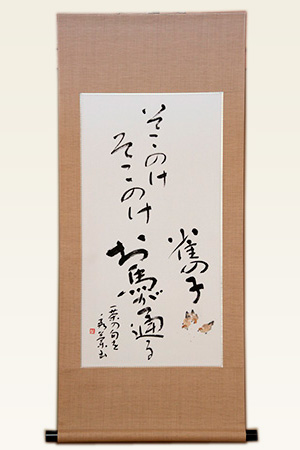 雀の子
そこのけ
そこのけ
お馬が通る
一茶の句を